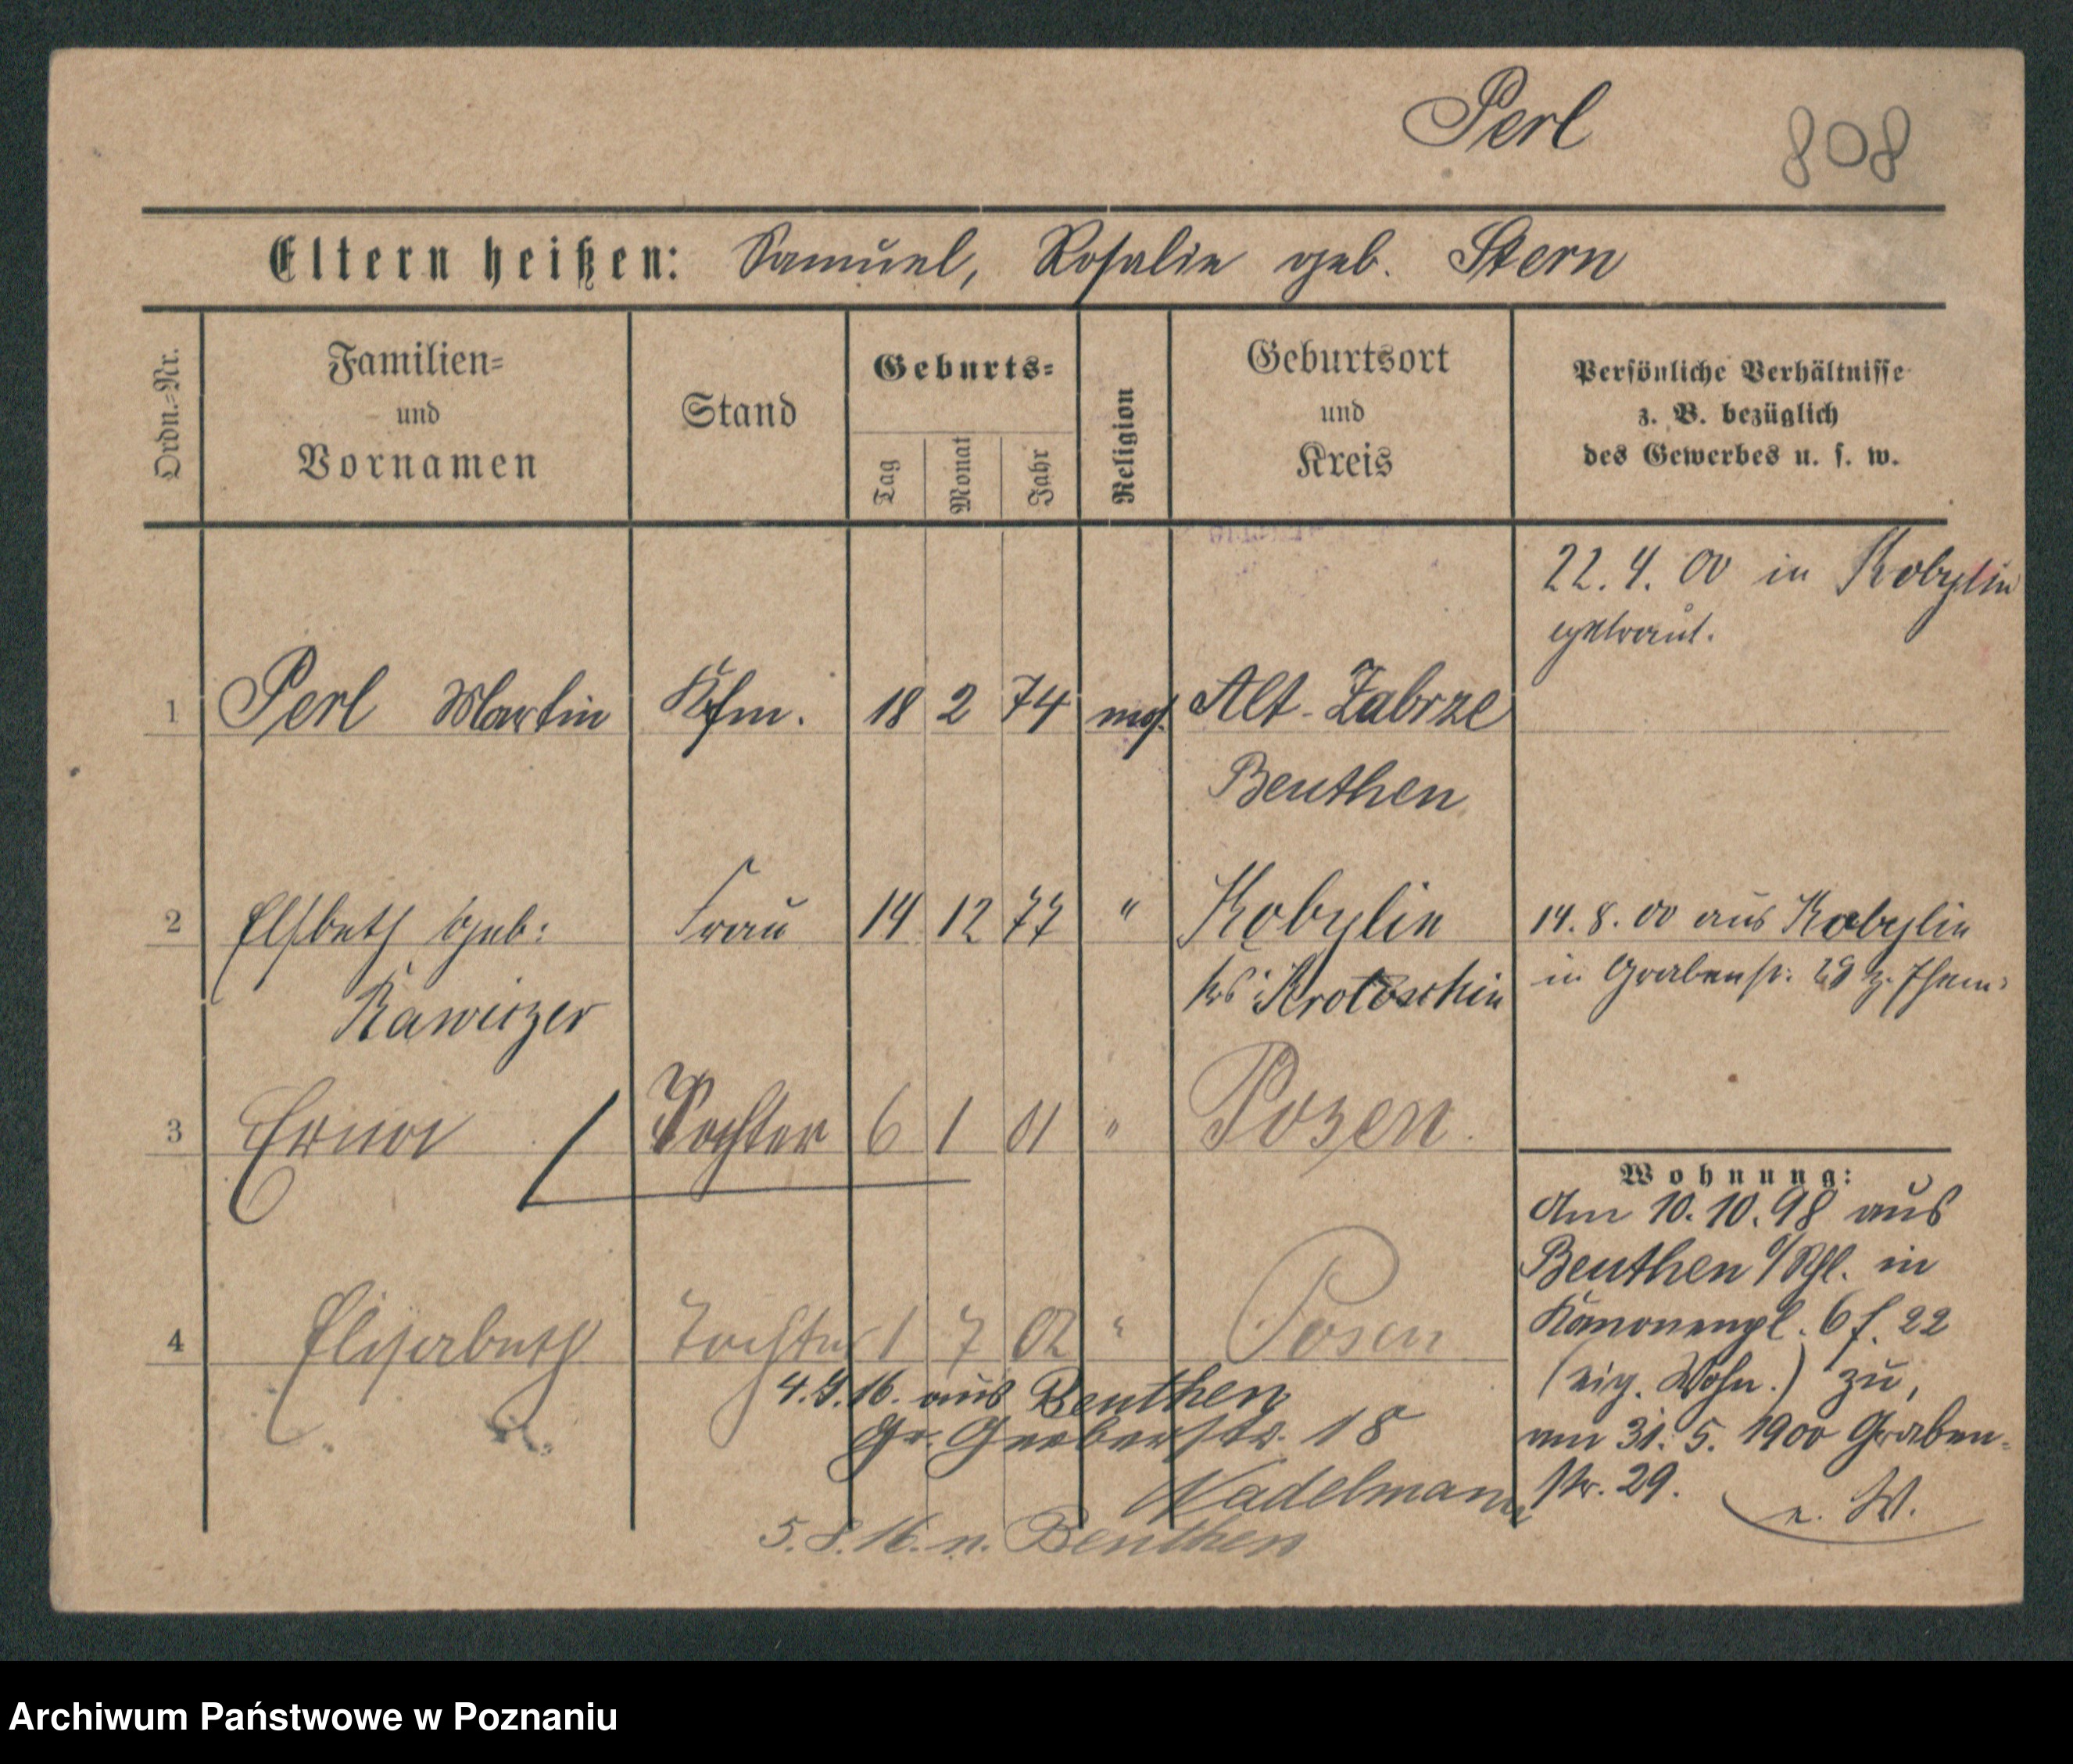 Perl 808
Eltern heißen: Samuel, Rosalie geb. Stern
Ordn.=Nr.
Familien=
und
Vornamen
Stand
Geburts=
Tag
Monat
Jahr
Religion
Geburtsort
und
Kreis
Persönliche Verhältnisse
z. B. bezüglich
des Gewerbes u. s. w.
22. 4. 00 in Kobylin
getraut.
1 Perl Martin Kfm. 18 2 74 mos. Alt-Zabrze
Beuthen
2 Elsbeth geb: Frau 14 12 77 " Kobylin
Rawitzer Krs: Krotoschin
14. 8. 00 aus Kobylin
in Grabenstr. 29 z. Ehem.
3 Erna Tochter 6 1 01 " Posen.
4 Elisabeth Tochter 1 7 02 " Posen
4. 16. aus Beuthen
Gr. Gerberstr. 18
Nadelmann
5. 8. 16. n. Beuthen
Wohnung:
Am 10. 10. 98 aus
Beuthen O/Schl. in
Kanonenpl. 6 f. 22
(eig. Wohn.) zu,
am 31. 5. 1900 Graben-
str. 29.
e. W.
Archiwum Państwowe w Poznaniu